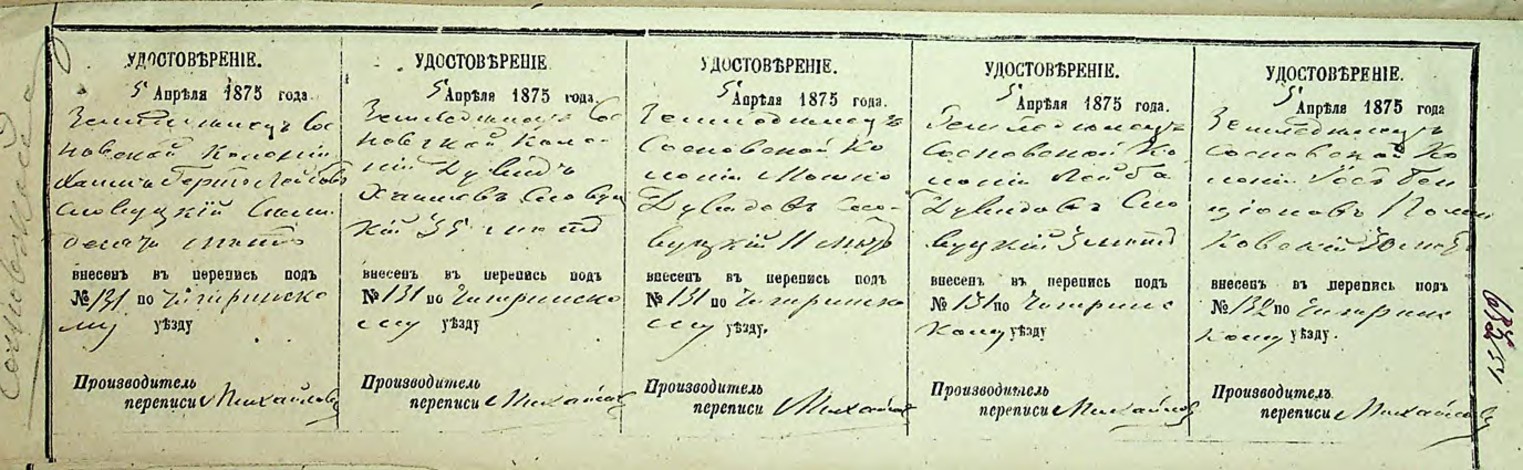 УДОСТОВѢРЕНІЕ.
5 Апрѣля 1875 года.
Земледѣлецъ Сос
новской Колоніи
Словуцкій
внесенъ въ перепись подъ
№ 131 по Чигринско
му уѣзду
Производитель
переписи Михайловъ
УДОСТОВѢРЕНІЕ
5 Апрѣля 1875 года.
Земледѣлецъ Сос
новской Коло
ніи Дувидъ
Словуц
кій 35 лѣтъ
внесенъ въ перепись подъ
№ 131 по Чигринско
му уѣзду
Производитель
переписи Михайловъ
УДОСТОВѢРЕНІЕ.
5 Апрѣля 1875 года.
Земледѣлецъ
Сосновской Ко
лоніи Мошко
Дувидовъ Сло-
вуцкій 11 лѣтъ
внесенъ въ перепись подъ
№ 131 по Чигринско
му уѣзду.
Производитель
переписи Михайлов
УДОСТОВѢРЕНІЕ.
5 Апрѣля 1875 года.
Земледѣлецъ
Сосновской Ко
лоніи Лейба
Дувидовъ Сло
вуцкій лѣтъ
внесенъ въ перепись подъ
№ 131 по Чигринс
кому уѣзду
Производитель
переписи Михайлов
УДОСТОВѢРЕНІЕ.
5 Апрѣля 1875 года
Земледѣлецъ
Сосновской Ко
лоніи Бен
ціоновъ
внесенъ въ перепись подъ
№ 132 по Чигринс
кому уѣзду.
Производитель
переписи Михайловъ